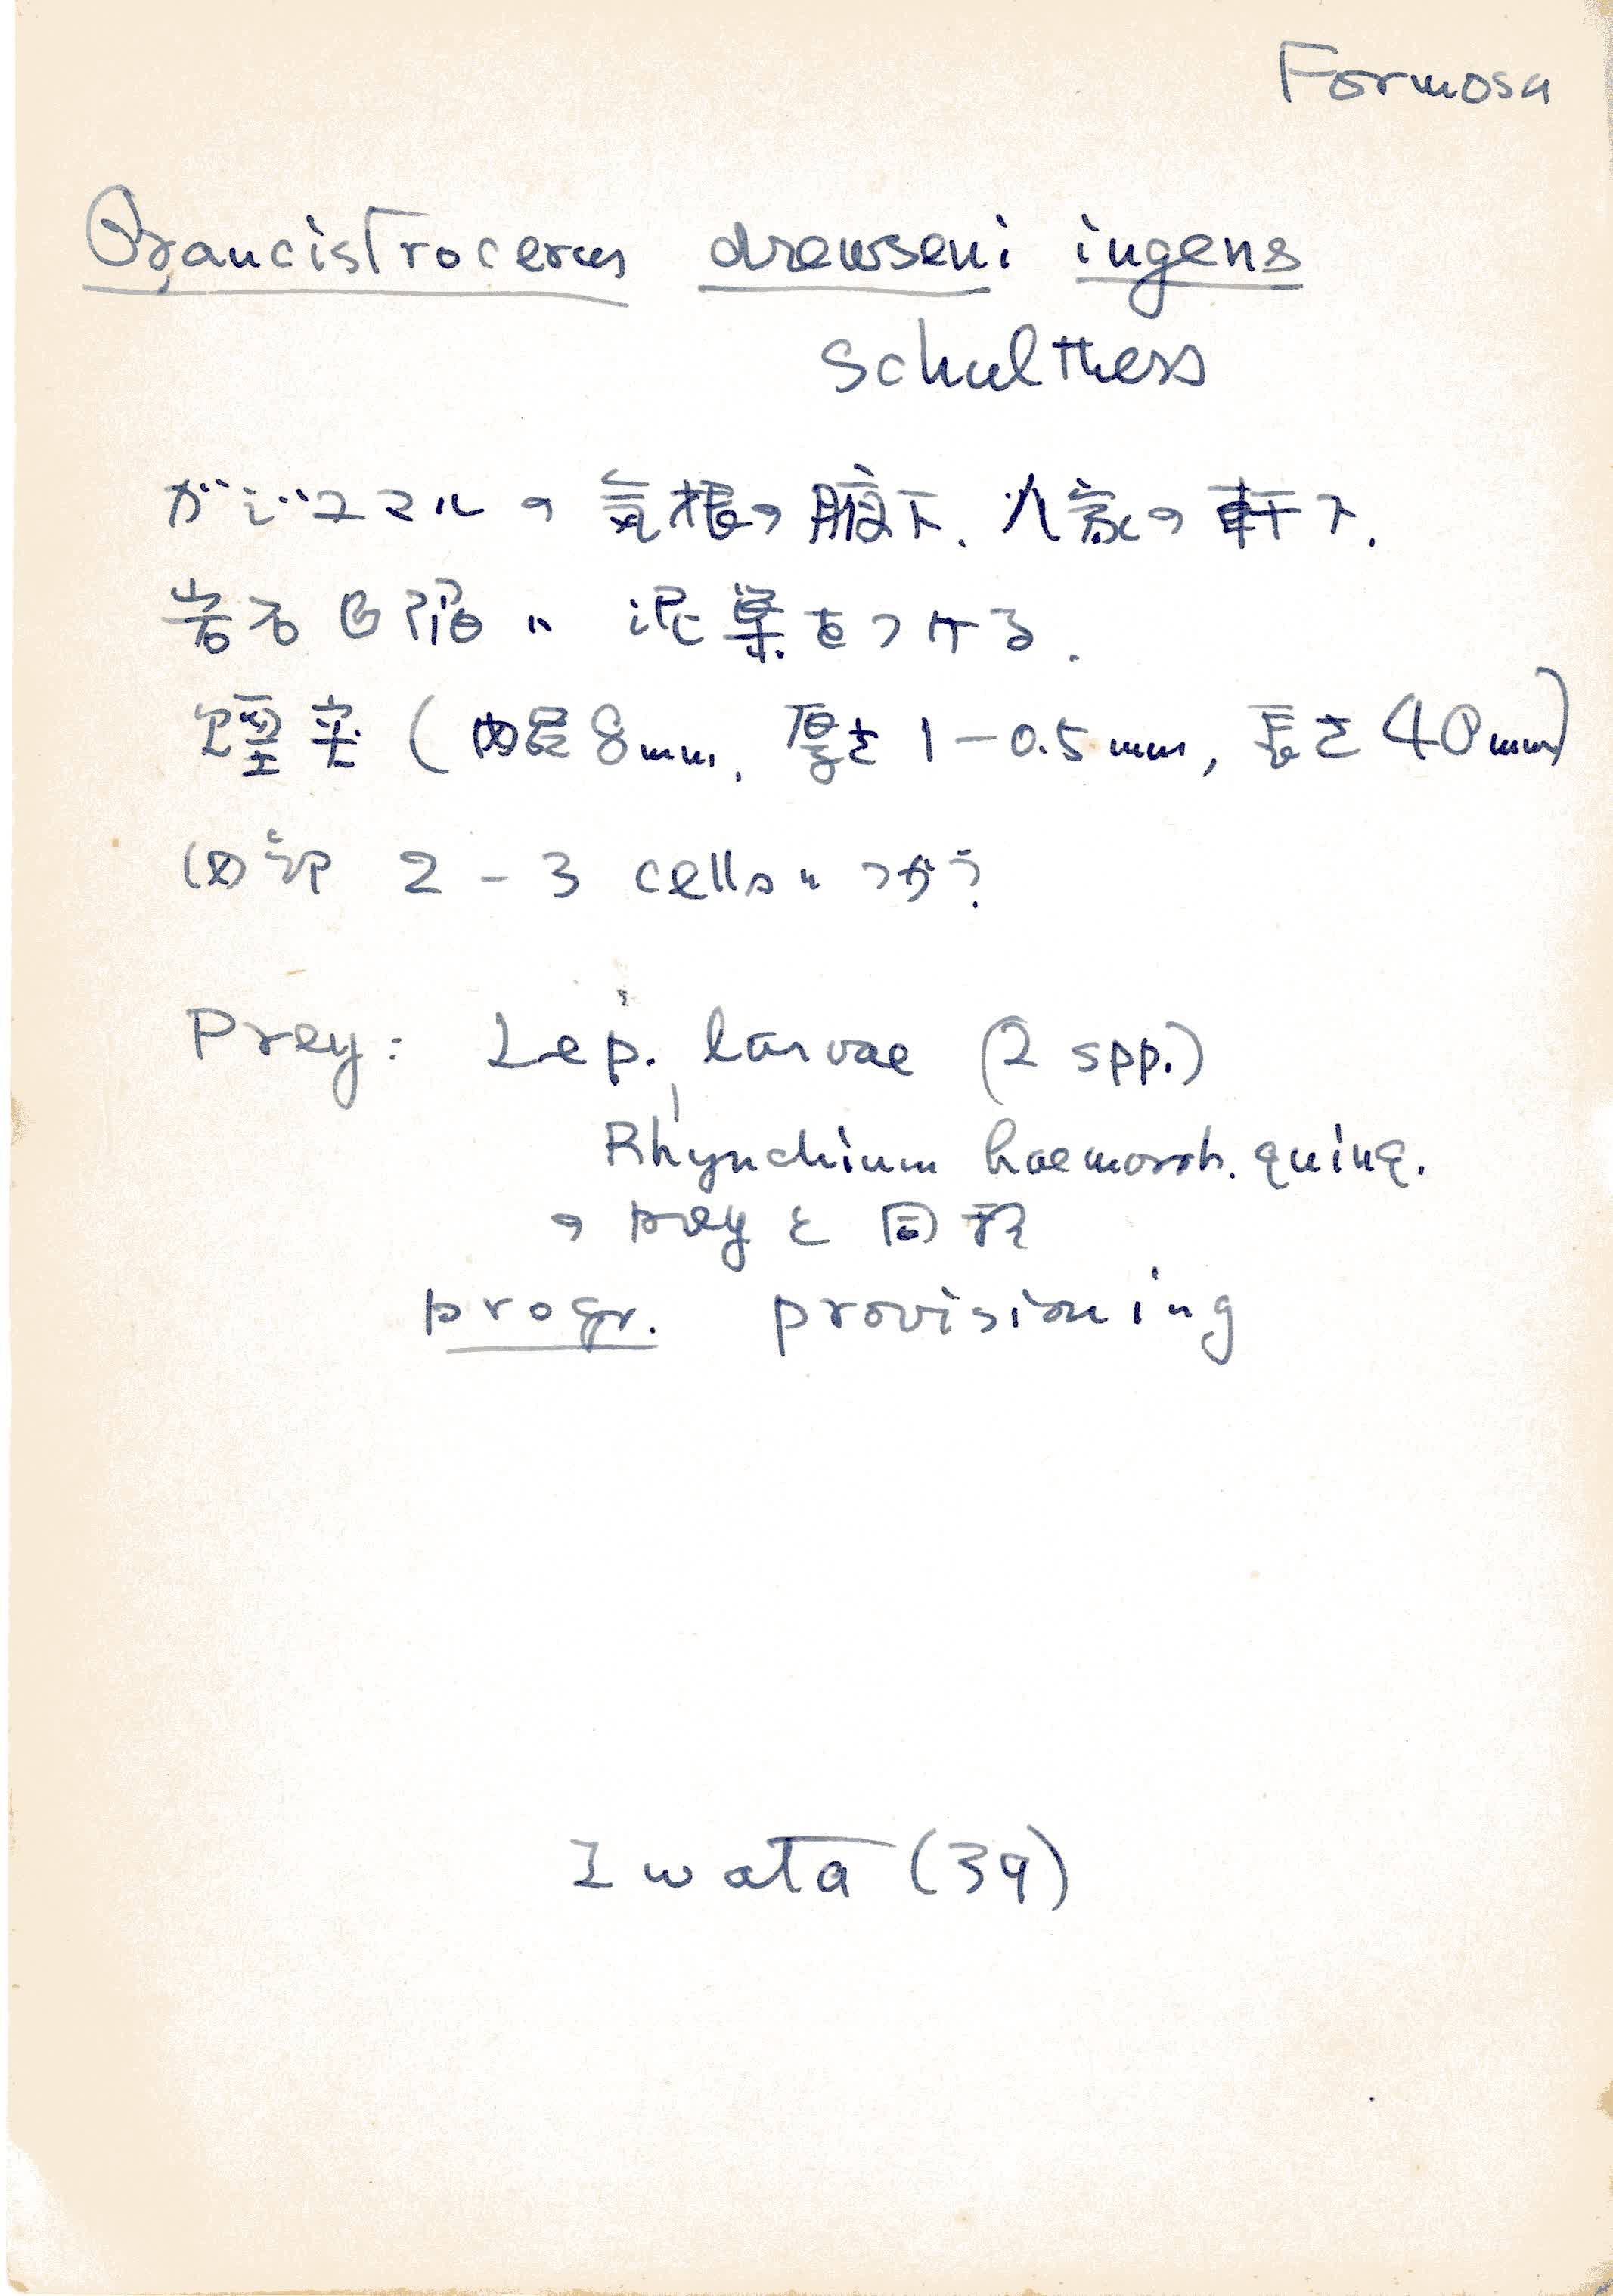 Formosa
Pseudancistrocerus drewseni ingens
Schulthess
ガジュマルの気根の腋下、人家の軒下.
岩石凹陥ニ 泥巣をつける.
煙突 (内径8mm, 厚さ 1-0.5 mm, 長さ40mm)
内部 2-3 cellsニ
Prey: Lep. larvae (2 spp.)
Rhynchium haemorrh. quinq.
ノ preyと同
progr. provisioning
Iwata (39)